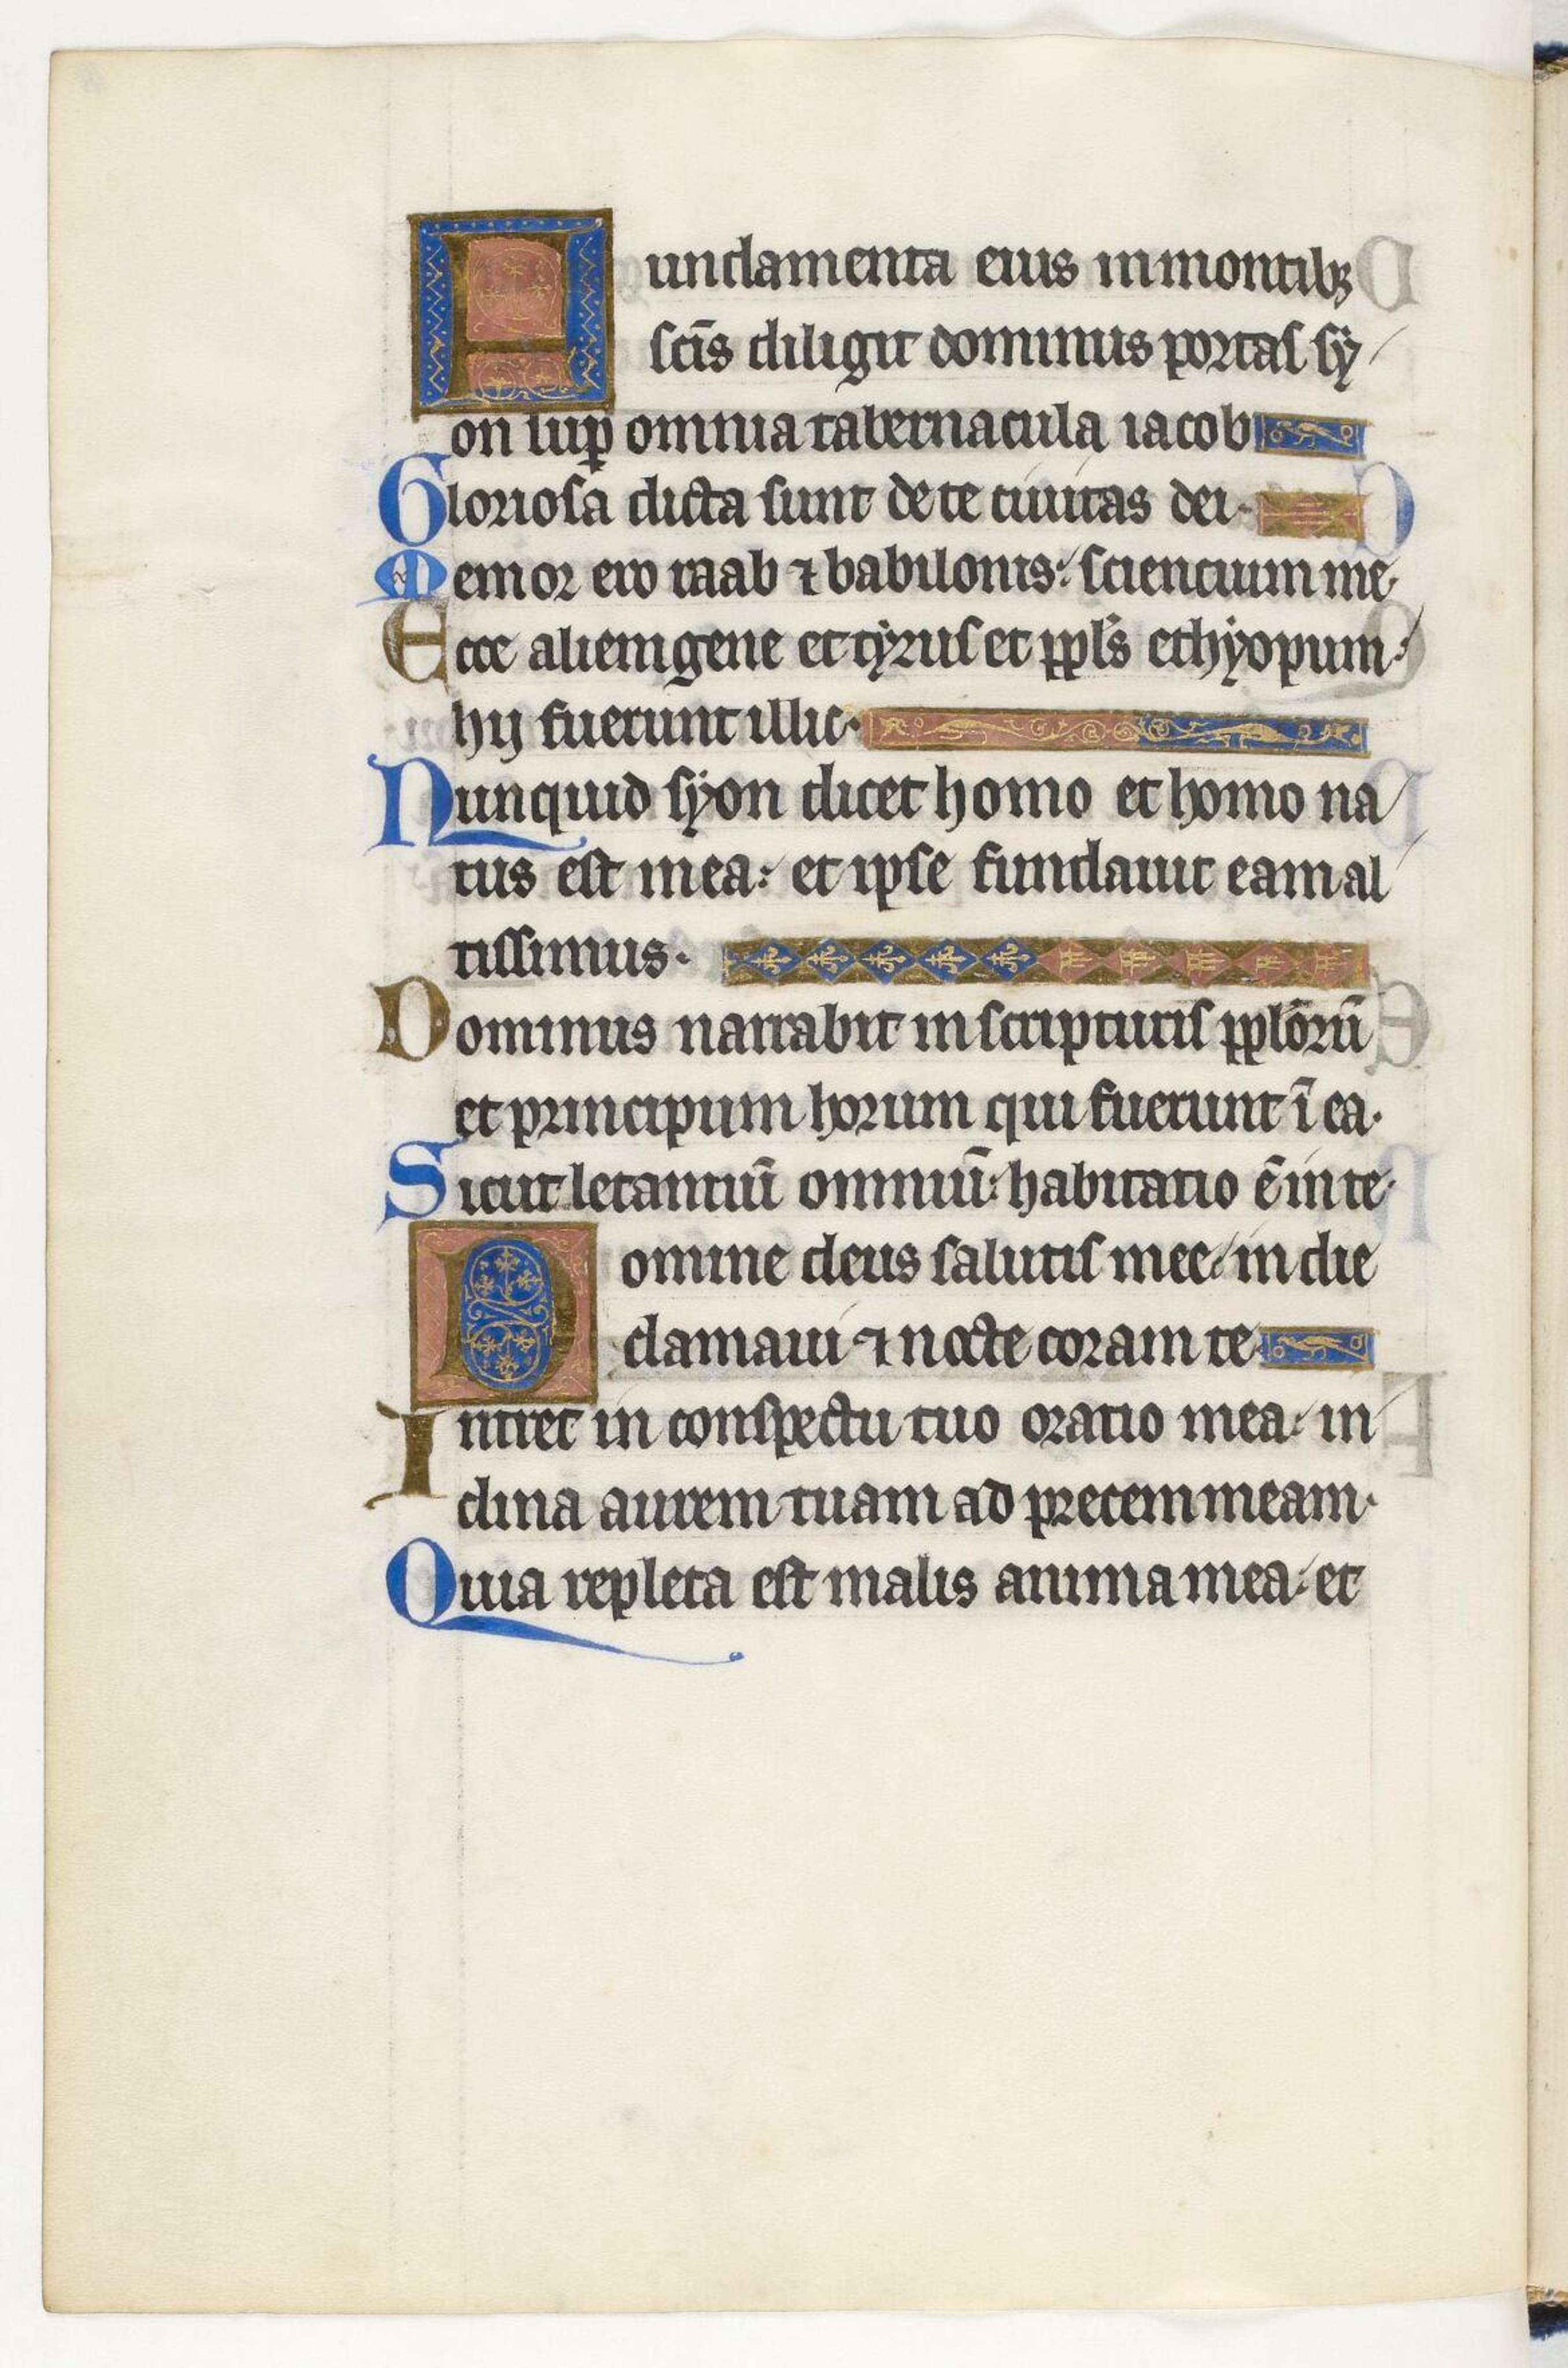 Fundamenta eius in montibꝫ
sc̄is diligit dominus portas sẏ
on sup̱ omnia tabernacula iacob
Gloriosa dicta sunt de te ciuitas dei.
Memor ero raab ⁊ babilonis: scientium me.
Ecce alienigene et tẏrus et ppl̄s ethẏopum:
hij fuerunt illic.
Nunquid sẏon dicet homo et homo na
tus est in ea: et ipse fundauit eam al
tissimus.
Dominus narrabit in scripturis ppl̄orū
et principum horum qui fuerunt ī ea.
Sicut letantiū omniū: habitatio ē in te.
Domine deus salutis mee: in die
clamaui ⁊ nocte coram te.
Intret in conspectu tuo oratio mea: in
clina aurem tuam ad precem meam.
Quia repleta est malis anima mea: et